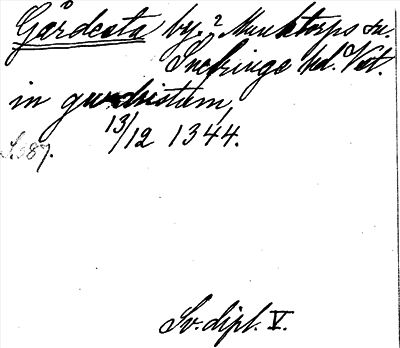 Gårdesta by.? Munktorps sn.
Snefringe hd. Vstl.
in gurdistum,
13/12 1344.
S. 587.
Sv. dipl. V.